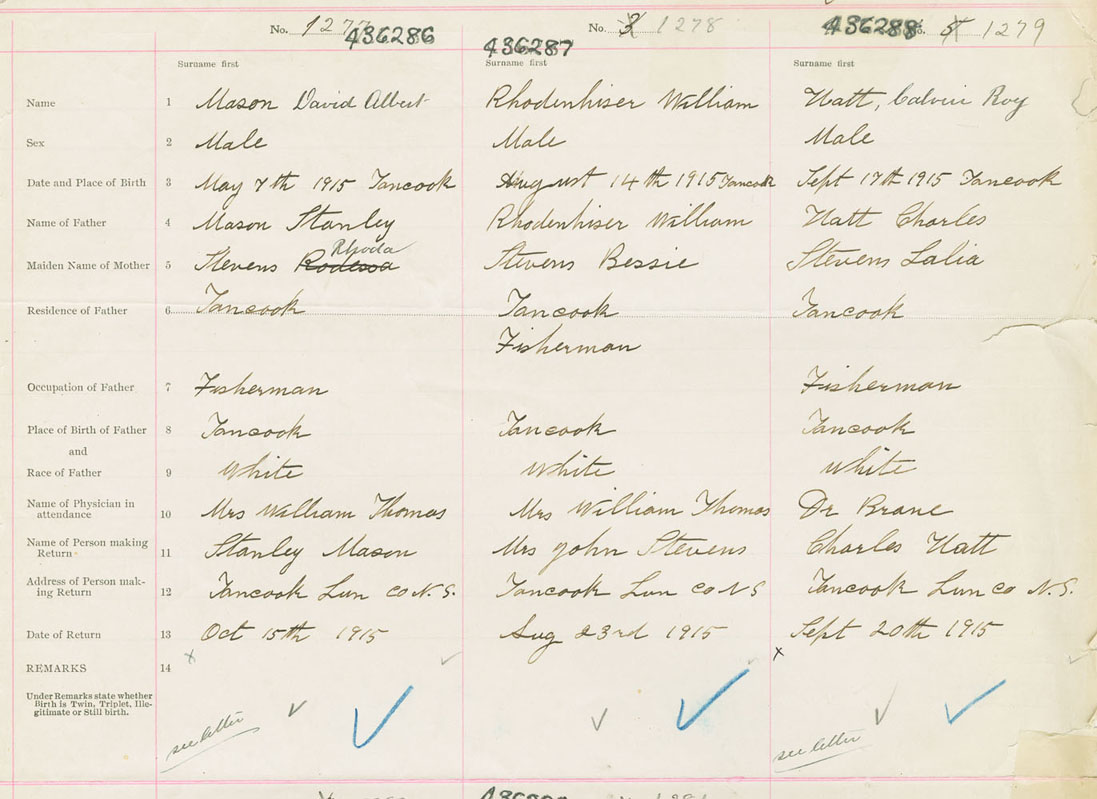 No. 1277 436286
436287 No. 3 1278
436288 No. 5 1279
Surname first Surname first Surname first
Name 1 Mason David Albert Rhodenhiser William Hatt, Calvin Roy
Sex 2 Male Male Male
Date and Place of Birth 3 May 7th 1915 Tancook August 14th 1915 Tancook Sept 17th 1915 Tancook
Name of Father 4 Mason Stanley Rhodenhiser William Hatt Charles
Rhoda
Maiden Name of Mother 5 Stevens Rodessa Stevens Bessie Stevens Lalia
Residence of Father 6 Tancook Tancook Tancook
Fisherman
Occupation of Father 7 Fisherman Fisherman
Place of Birth of Father 8 Tancook Tancook Tancook
and
Race of Father 9 White White White
Name of Physician in
attendance 10 Mrs William Thomas Mrs William Thomas Dr Brane
Name of Person making
Return 11 Stanley Mason Mrs John Stevens Charles Hatt
Address of Person mak-
ing Return 12 Tancook Lun Co N.S. Tancook Lun Co N S Tancook Lun Co N.S.
Date of Return 13 Oct 15th 1915 Aug 23rd 1915 Sept 20th 1915
REMARKS 14 x x
Under Remarks state whether
Birth is Twin, Triplet, Ille-
gitimate or Still birth.
see letter see letter